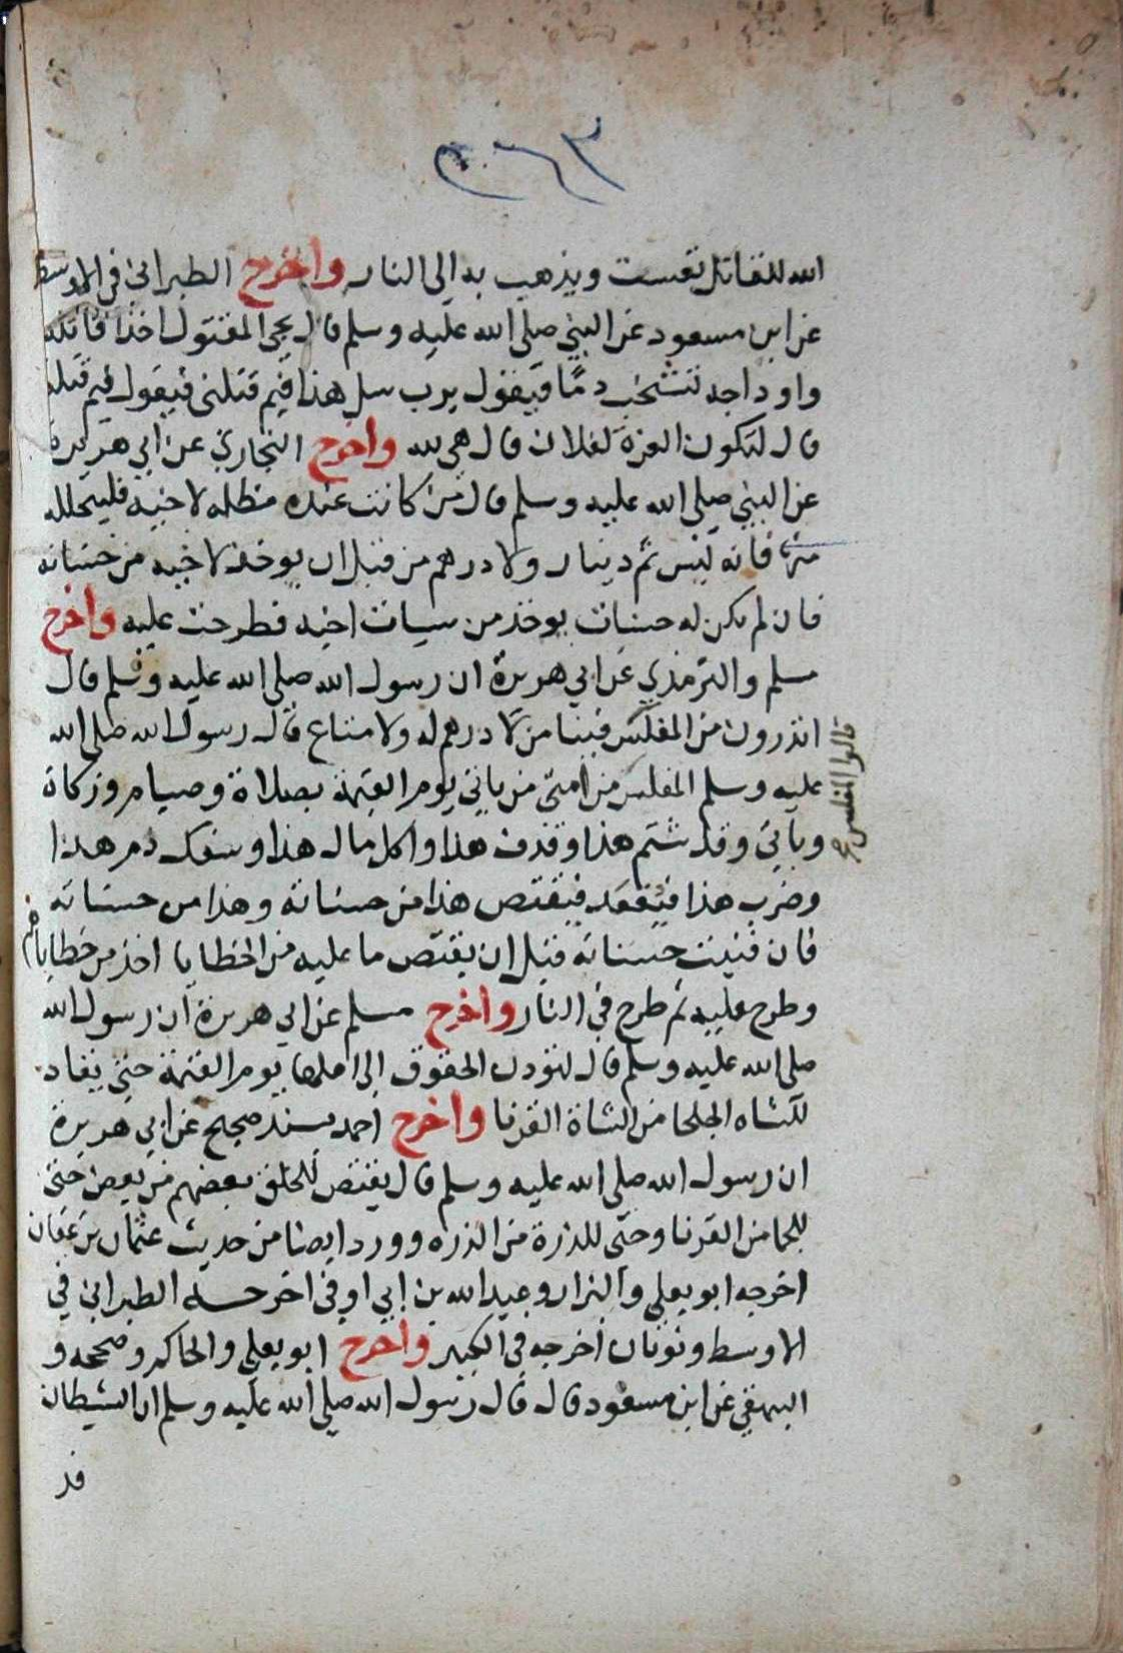 ٢٦٣
الله للقاتل تعست ويذهب به الى النار واخرج الطبراني في الاوسط
عن ابن مسعود عن النبي صلى الله عليه وسلم قال يجى المقتول اخذا قاتله
واوداجه تشخب دما فيقول يرب سل هذا فيم قتلني فيقول فيم قتلته
قال لتكون العزة لفلان قال هي لله واخرج البخاري عن ابي هريرة
عن النبي صلى الله عليه وسلم قال من كانت عنده مظلمه لاخيه فليتحلله
منها فانه ليس ثم دينار ولا درهم من قبل ان يوخذ لاخيه من حسناته
فان لم يكن له حسنات يوخذ من سيات اخيه فطرحت عليه واخرج
مسلم والترمذي عن ابي هريرة ان رسول الله صلى الله عليه وسلم قال
اتدرون من المفلس فينا من لا درهم له ولا متاع قال رسول الله صلى الله
قالوا المفلس صح
عليه وسلم المفلس من امتى من ياتي يوم القيمة بصلاة وصيام وزكاة
وياتي وقد شتم هذا وقذف هذا واكل مال هذا وسفك دم هذا
وضرب هذا فيقعد فيقتص هذا من حسناته وهذا من حسناته
فان فنيت حسناته قبل ان يقتص ما عليه من الخطايا اخذ من خطاياهم
وطرح عليه ثم طرح في النار واخرج مسلم عن ابي هريرة ان رسول الله
صلى الله عليه وسلم قال لتودن الحقوق الى اهلها يوم القيمة حتى يقاد
للشاه الجلحا من الشاة القرنا واخرج احمد بسند صحيح عن ابي هريرة
ان رسول الله صلى الله عليه وسلم قال يقتص للخلق بعضهم من بعض حتى
للجما من القرنا وحتى للذرة من الذره وورد ايضا من حديث عثمان بن عفان
اخرجه ابو يعلى والبزار وعبد الله بن ابي اوفى اخرجه الطبراني في
الاوسط وثوبان اخرجه في الكبير واخرج ابو يعلى والحاكم وصححه و
البيهقي عن ابن مسعود قال قال رسول الله صلى الله عليه وسلم ان الشيطان
قد